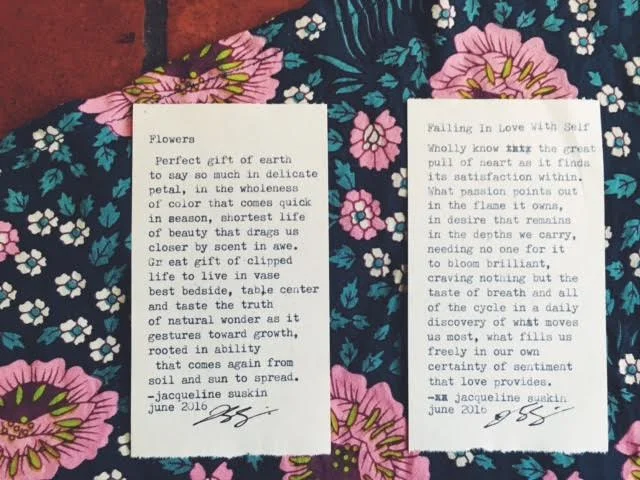 Flowers
Perfect gift of earth
to say so much in delicate
petal, in the wholeness
of color that comes quick
in season, shortest life
of beauty that drags us
closer by scent in awe.
Gr eat gift of clipped
life to live in vase
best bedside, table center
and taste the truth
of natural wonder as it
gestures toward growth,
rooted in ability
that comes again from
soil and sun to spread.
-jacqueline suskin
june 2016
Falling In Love With Self
Wholly know the great
pull of heart as it finds
its satisfaction within.
What passion points out
in the flame it owns,
in desire that remains
in the depths we carry,
needing no one for it
to bloom brilliant,
craving nothing but the
taste of breath and all
of the cycle in a daily
discovery of what moves
us most, what fills us
freely in our own
certainty of sentiment
that love provides.
- jacqueline suskin
june 2016